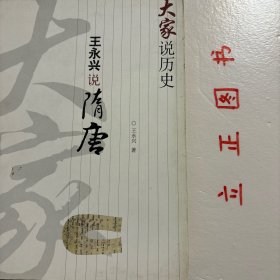 大家说历史
王永兴说
隋唐
◎王永兴 著
大家
立正图书